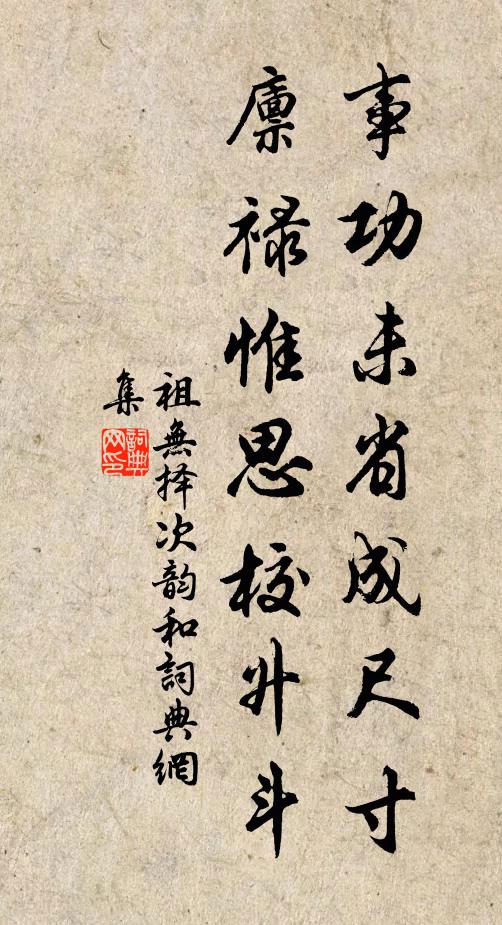 事功未省成尺寸
廪禄惟思校升斗
祖無择次韵和詞典網
集
詞典網印